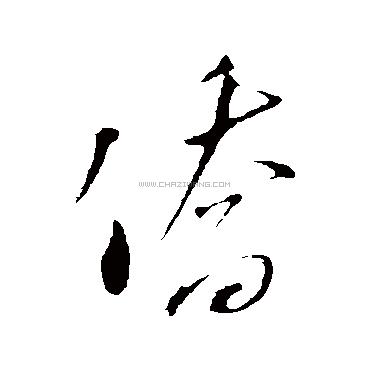 僑
WWW.CHAZIWANG.COM